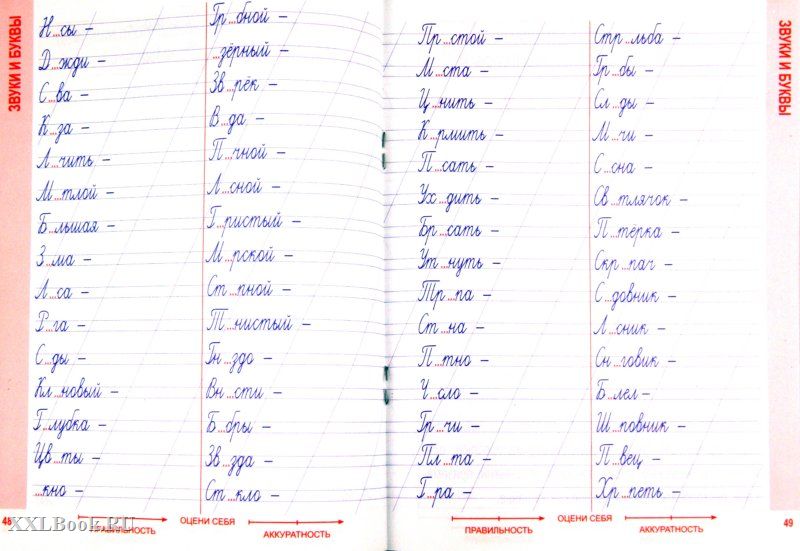 ЗВУКИ И БУКВЫ
Н...сы –
Д...жди –
С...ва –
К...за –
Л...чить –
М...тлой –
Б...льшая –
З...ма –
Л...са –
Р...га –
С...ды –
Кл...новый –
Г...лубка –
Цв...ты –
...кно –
Гр...бной –
...зёрный –
Зв...рёк –
В...да –
П...чной –
Л...сной –
Г...ристый –
М...рской –
Ст...пной –
Т...нистый –
Гн...здо –
Вн...сти –
Б...бры –
Зв...зда –
Ст...кло –
48
XXLBook.RU
ПРАВИЛЬНОСТЬ
ОЦЕНИ СЕБЯ
АККУРАТНОСТЬ
Пр...стой –
М...ста –
Ц...нить –
К...рмить –
П...сать –
Ух...дить –
Бр...сать –
Ут...нуть –
Тр...па –
Ст...на –
П...тно –
Ч...сло –
Гр...чи –
Пл...та –
Г...ра –
Стр...льба –
Гр...бы –
Сл...ды –
М...чи –
С...сна –
Св...тлячок –
П...тёрка –
Скр...пач –
С...довник –
Л...сник –
Сн...говик –
Б...лел –
Ш...повник –
П...вец –
Хр...петь –
ЗВУКИ И БУКВЫ
ПРАВИЛЬНОСТЬ
ОЦЕНИ СЕБЯ
АККУРАТНОСТЬ
49